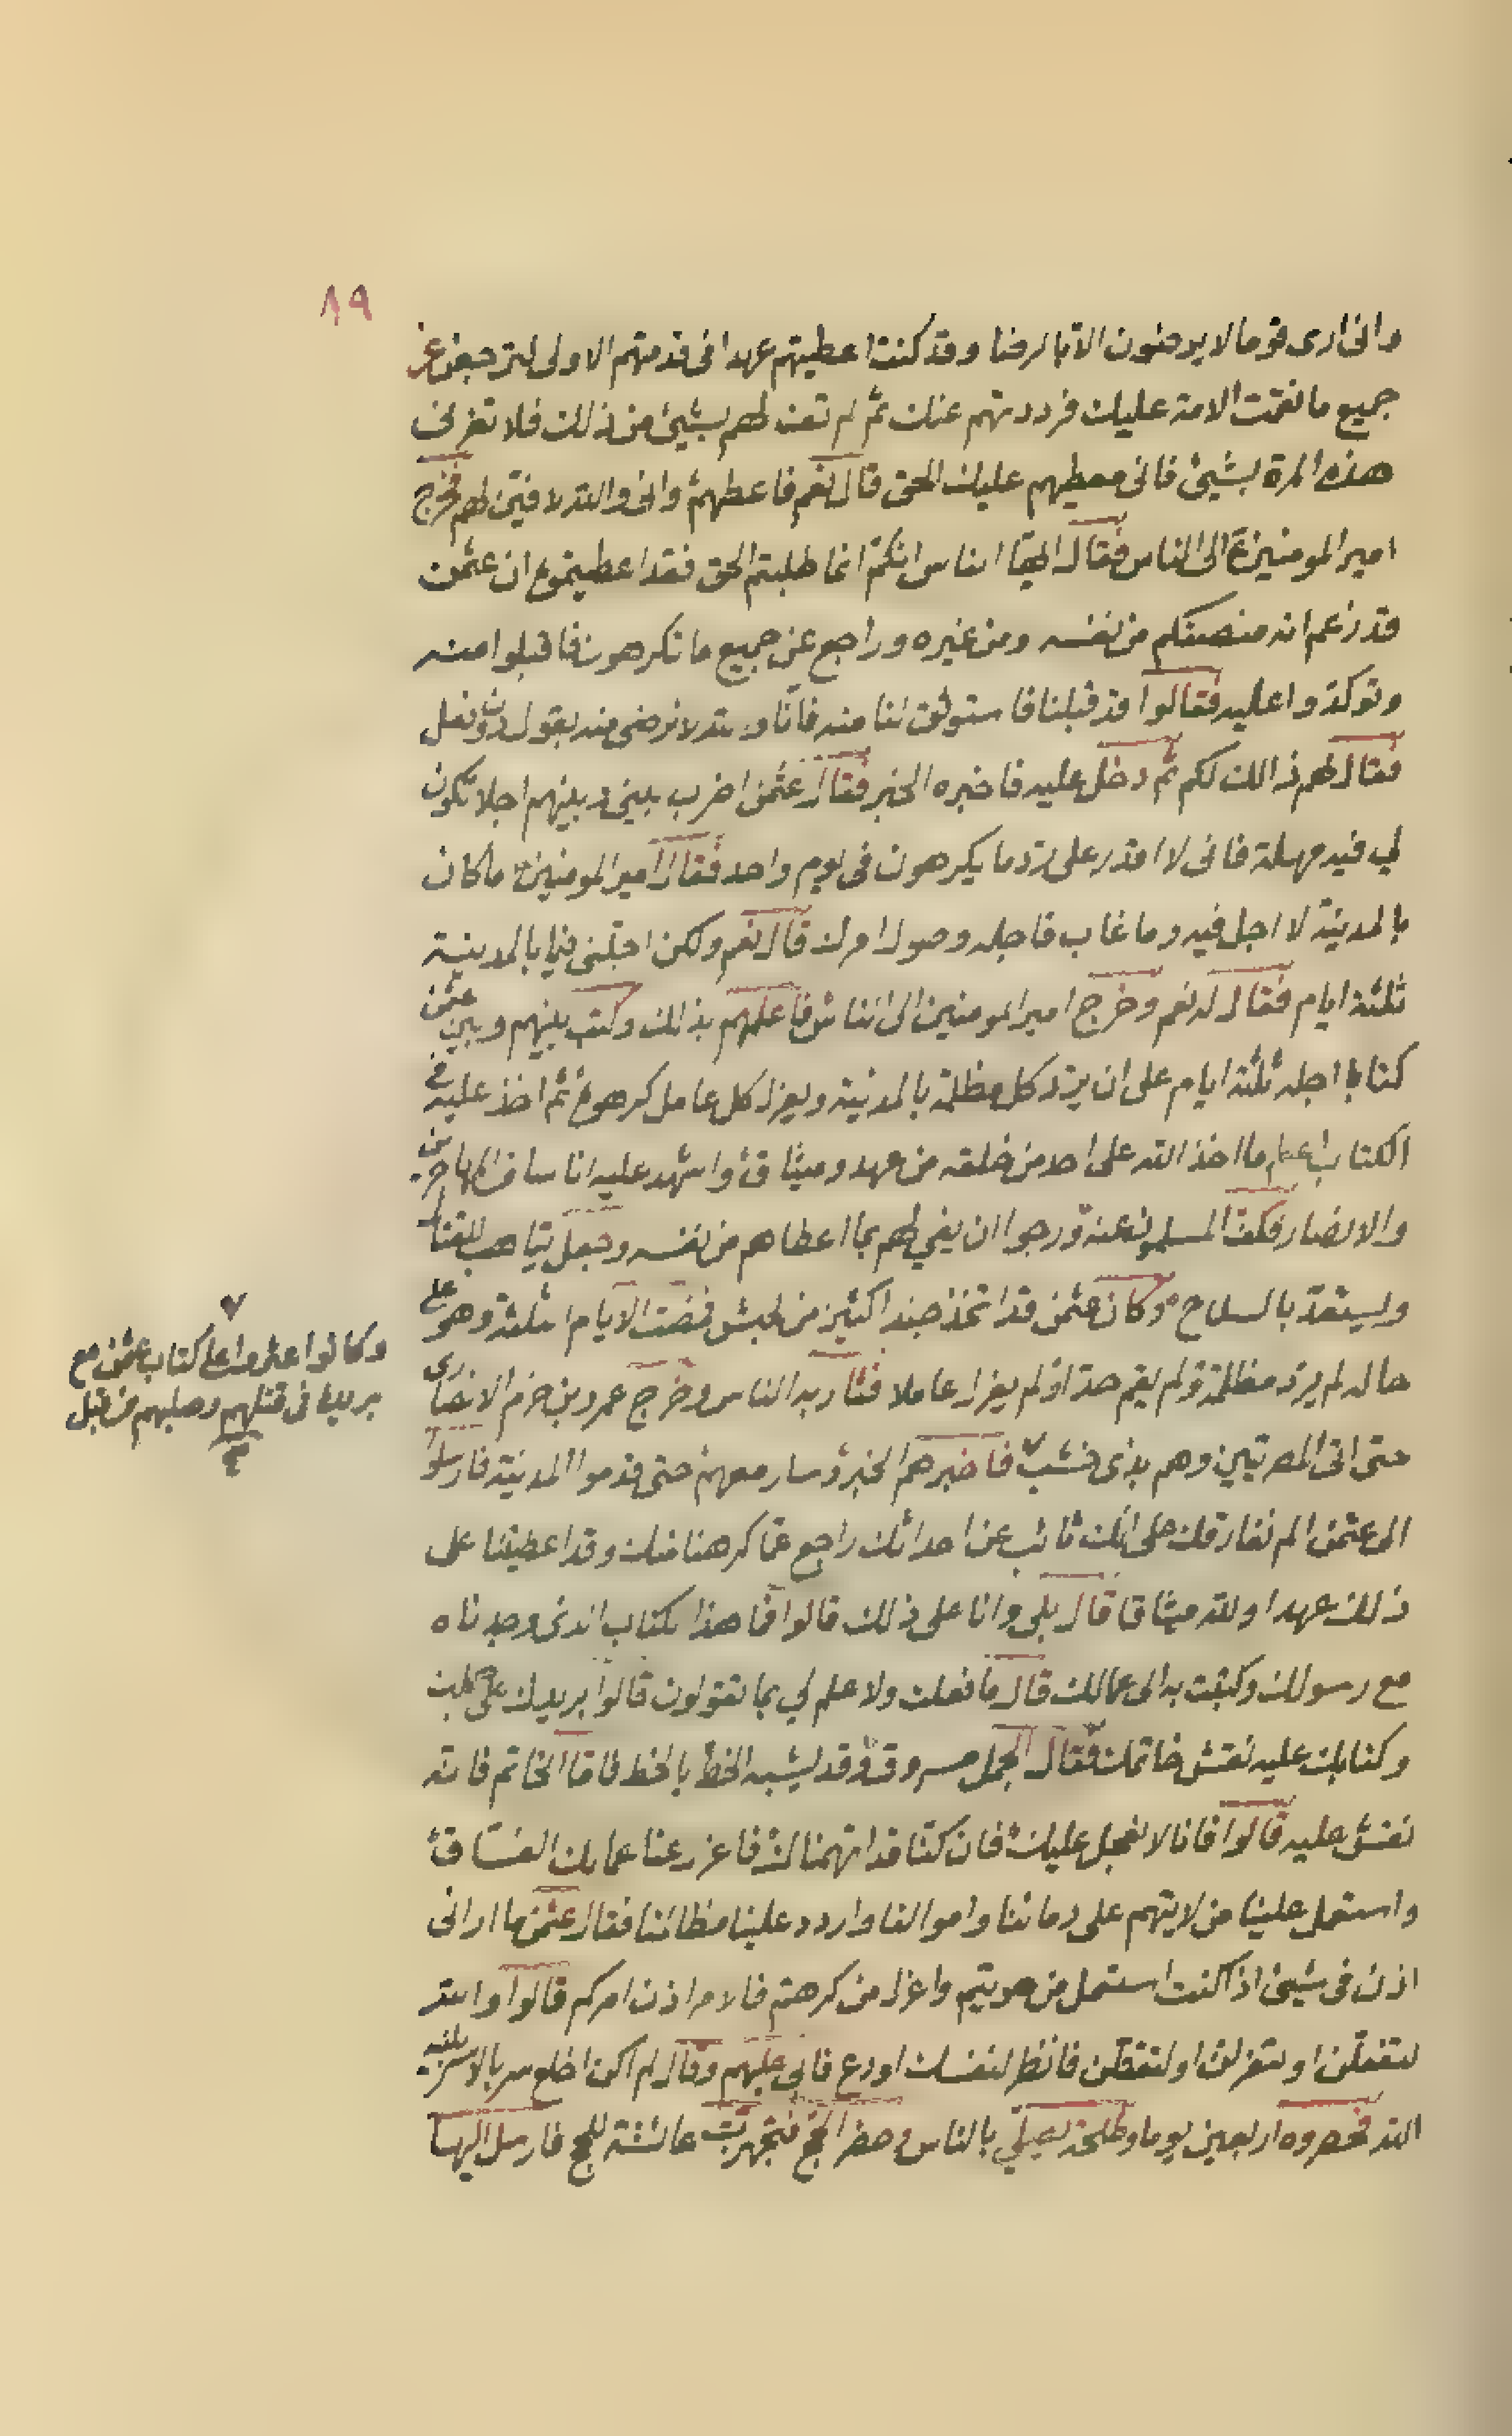 ٨٩
وانى ارى قوما لا يرضون الا بالرضا وقد كنت اعطيتهم عهدا فى قدمتهم الاولى لترجعن عن
جميع ما نقمت الامة عليك فرددتهم عنك ثم لم تف لهم بشيئ من ذلك فلا تغرنى
هذه المرة بشيئ فانى معطيهم عليك الحق قال نعم فاعطهم وانى والله لافين لهم فخرج
امير المومنين ع الى الناس فقال ايها الناس انكم انما طلبتم الحق فقد اعطيتموه ان عثمن
قد زعم انه منصفكم من نفسه ومن غيره وراجع عن جميع ما تكرهون فاقبلوا منه
وتوكدوا عليه فقالوا قد قبلنا فاستوثق لنا منه فانا والله لا نرضى منه بقول دون فعل
فقال لهم ذالك لكم ثم دخل عليه فاخبره الخبر فقال عثمن اضرب بينى وبينهم اجلا تكون
لي فيه مهلة فانى لا اقدر على رد ما يكرهون فى يوم واحد فقال امير المومنين ع ما كان
بالمدينة لا اجل فيه وما غاب فاجله وصول امرك قال نعم ولكن اجلنى فيما بالمدينة
ثلثة ايام فقال له نعم وخرج امير المومنين الى الناس فاعلمهم بذالك وكتب بينهم وبين عثمن
كتابا اجله ثلثة ايام على ان يرد كل مظلمة بالمدينة ويعزل كل عامل كرهوه ثم اخذ عليه فى
الكتاب اعظم ما اخذ الله على احد من خلقه من عهد وميثاق واشهد عليه اناسا من المهاجرين
والانصار فكف المسلمون عنه ورجوا ان يفي لهم بما اعطاهم من نفسه وجعل يتاهب للقتال
ويستعد بالسلاح وكان عثمن قد اتخذ جندا كثير من لحبش فمضت الايام الثلثة وهو على
حاله لم يرد مظلمة ولم يقم حدا ولم يعزل عاملا فثار به الناس وخرج عمرو بن حزم الانصارى
حتى اتى المصريين وهم بذى خشب فاخبرهم الخبر وسار معهم حتى قدموا المدينة فارسلوا
الى عثمن الم نفارقك على انك تائب عن احداثك راجع عما كرهنا منك وقد اعطيتنا على
ذلك عهدا ولله ميثاقا قال بلى وانا على ذلك قالوا فما هذا لكتاب الذى وجدناه
مع رسولك وكتبت به الى عمالك قال ما فعلت ولا علم لي بما تقولون قالوا بريدك على جملك
وكتابك عليه نقش خاتمك فقال الجمل مسروق وقد يشبه الخط بالخط فاما الخاتم فانه
نقش عليه قالوا فانا لا نعجل عليك فان كنا قد اتهمناك فاعزل عنا عمالك الفساق
واستعمل علينا من لا يتهم على دمائنا واموالنا واردد علينا مظالمنا فقال عثمن ما ارانى
اذن فى شيئ اذا كنت استعمل من هويتم واعزل من كرهتم فالامر اذن امركم قالوا والله
لتفعلن او لتعزلن او لتقتلن فانظر لنفسك او دع فابى عليهم وقال لم اكن اخلع سربالا سربلنيه
الله فحصروه اربعين يوما وطلحة يصلي بالناس وحضر الحج فتجهزت عائشة للحج فارسل اليها
وكانوا عثروا على كتاب عثمن مع
بريده فى قتلهم وصلبهم من قبل